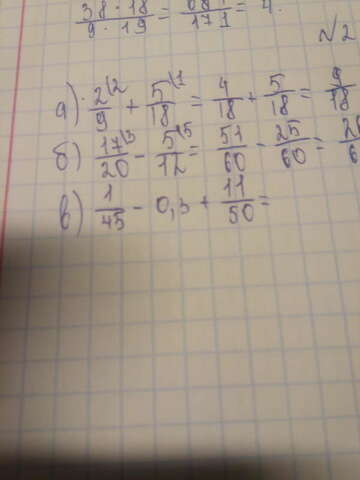 38 · 18 / 9 · 19 = / 171 = 4.
№2
а) 2\2 / 9 + 5\1 / 18 = 4 / 18 + 5 / 18 = 9 / 18
б) 17\3 / 20 - 5\5 / 12 = 51 / 60 - 25 / 60 =
в) 1 / 45 - 0,3 + 11 / 50 =